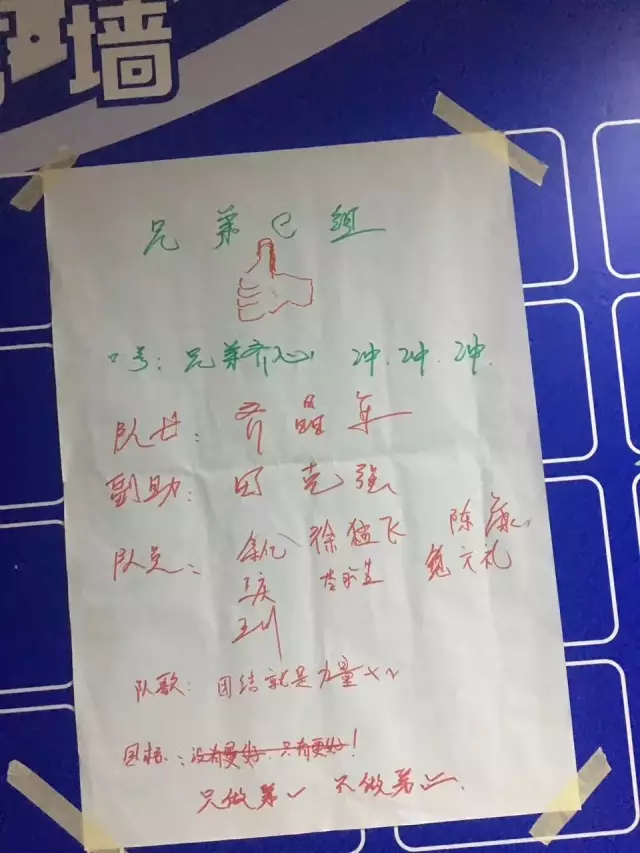 墙
兄弟e组
口号：兄弟齐心 冲.冲.冲.
队长：齐晶年
副助：田克强
队员：徐猛飞 陈康
王庆
王川
队歌：团结就是力量×2
目标：没有最好，只有更好！
只做第一 不做第二.